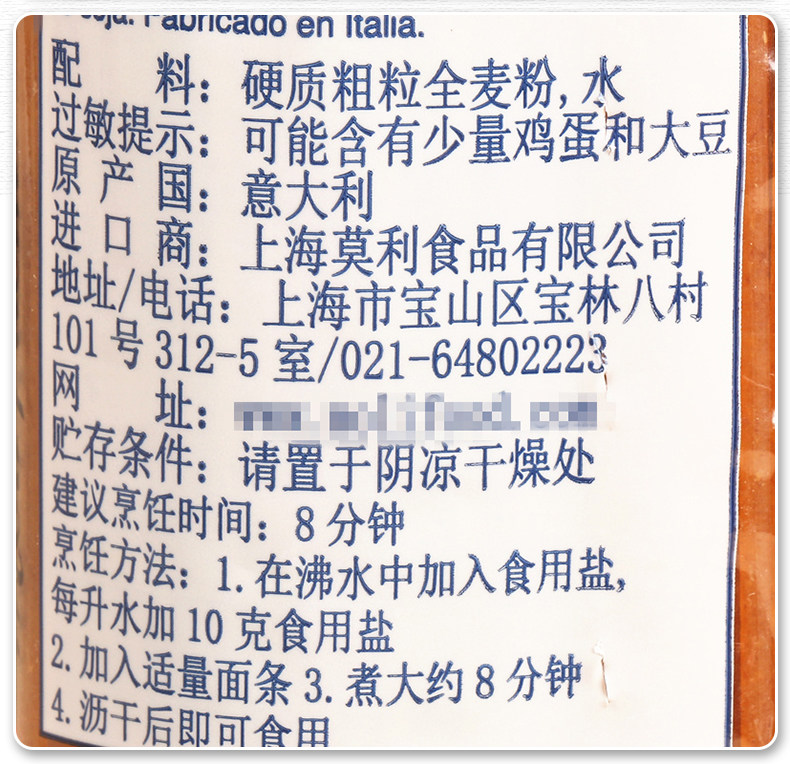 soja. Fabricado en Italia.
配 料：硬质粗粒全麦粉，水
过敏提示：可能含有少量鸡蛋和大豆
原 产 国：意大利
进 口 商：上海莫利食品有限公司
地址/电话：上海市宝山区宝林八村
101号312-5室/021-64802223
网 址：
贮存条件：请置于阴凉干燥处
建议烹饪时间：8分钟
烹饪方法：1.在沸水中加入食用盐，
每升水加10克食用盐
2.加入适量面条3.煮大约8分钟
4.沥干后即可食用